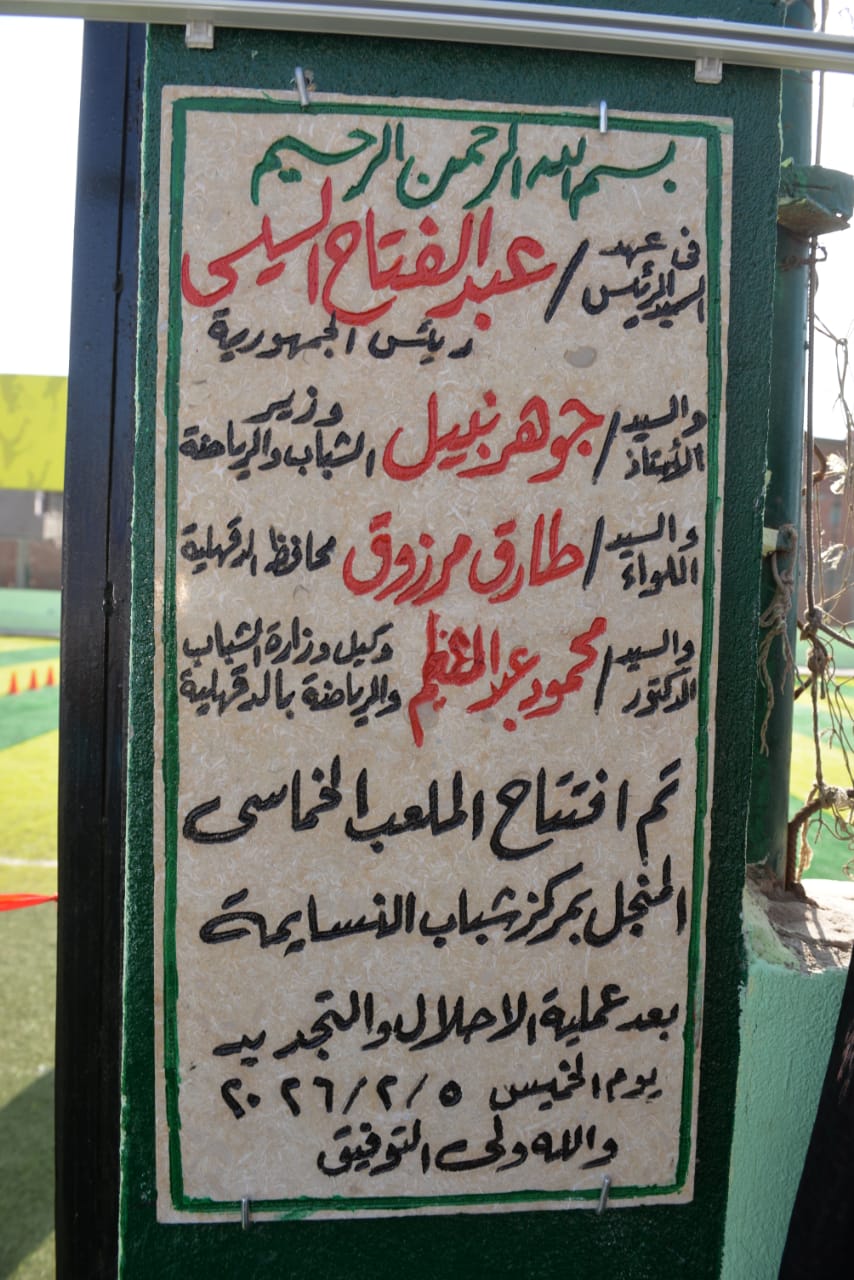 بسم الله الرحمن الرحيم
فى عهد السيد الرئيس / عبد الفتاح السيسى
رئيس الجمهورية
والسيد الأستاذ / جوهر نبيل وزير الشباب والرياضة
والسيد اللواء / طارق مرزوق محافظ الدقهلية
والسيد الدكتور / محمود عبد العظيم وكيل وزارة الشباب والرياضة بالدقهلية
تم افتتاح الملعب الخماسى
المنجل بمركز شباب النسايمة
بعد عملية الاحلال والتجديد
يوم الخميس ٢٠٢٦/٢/٥
والله ولى التوفيق